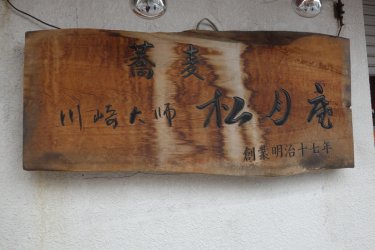 蕎麦
川崎大師 松月庵
創業明治十七年